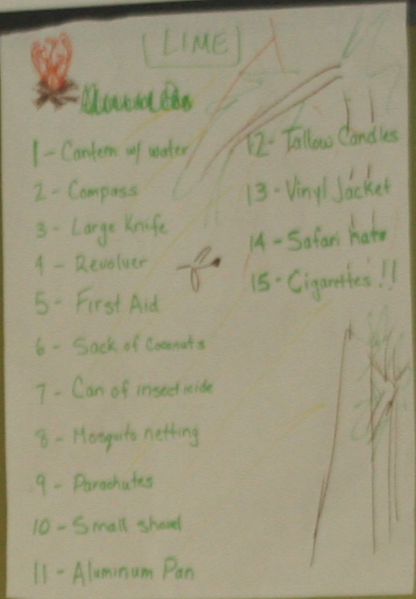 [LIME]
1- Cantem w/ water
2- Compass
3- Large Knife
4- Revolver
5- First Aid
6- Sack of Coconuts
7- Can of insecticide
8- Mosquito netting
9- Parachutes
10- Small shovel
11- Aluminum Pan
12- Tallow Candles
13- Vinyl Jacket
14- Safari hats
15- Cigarettes!!